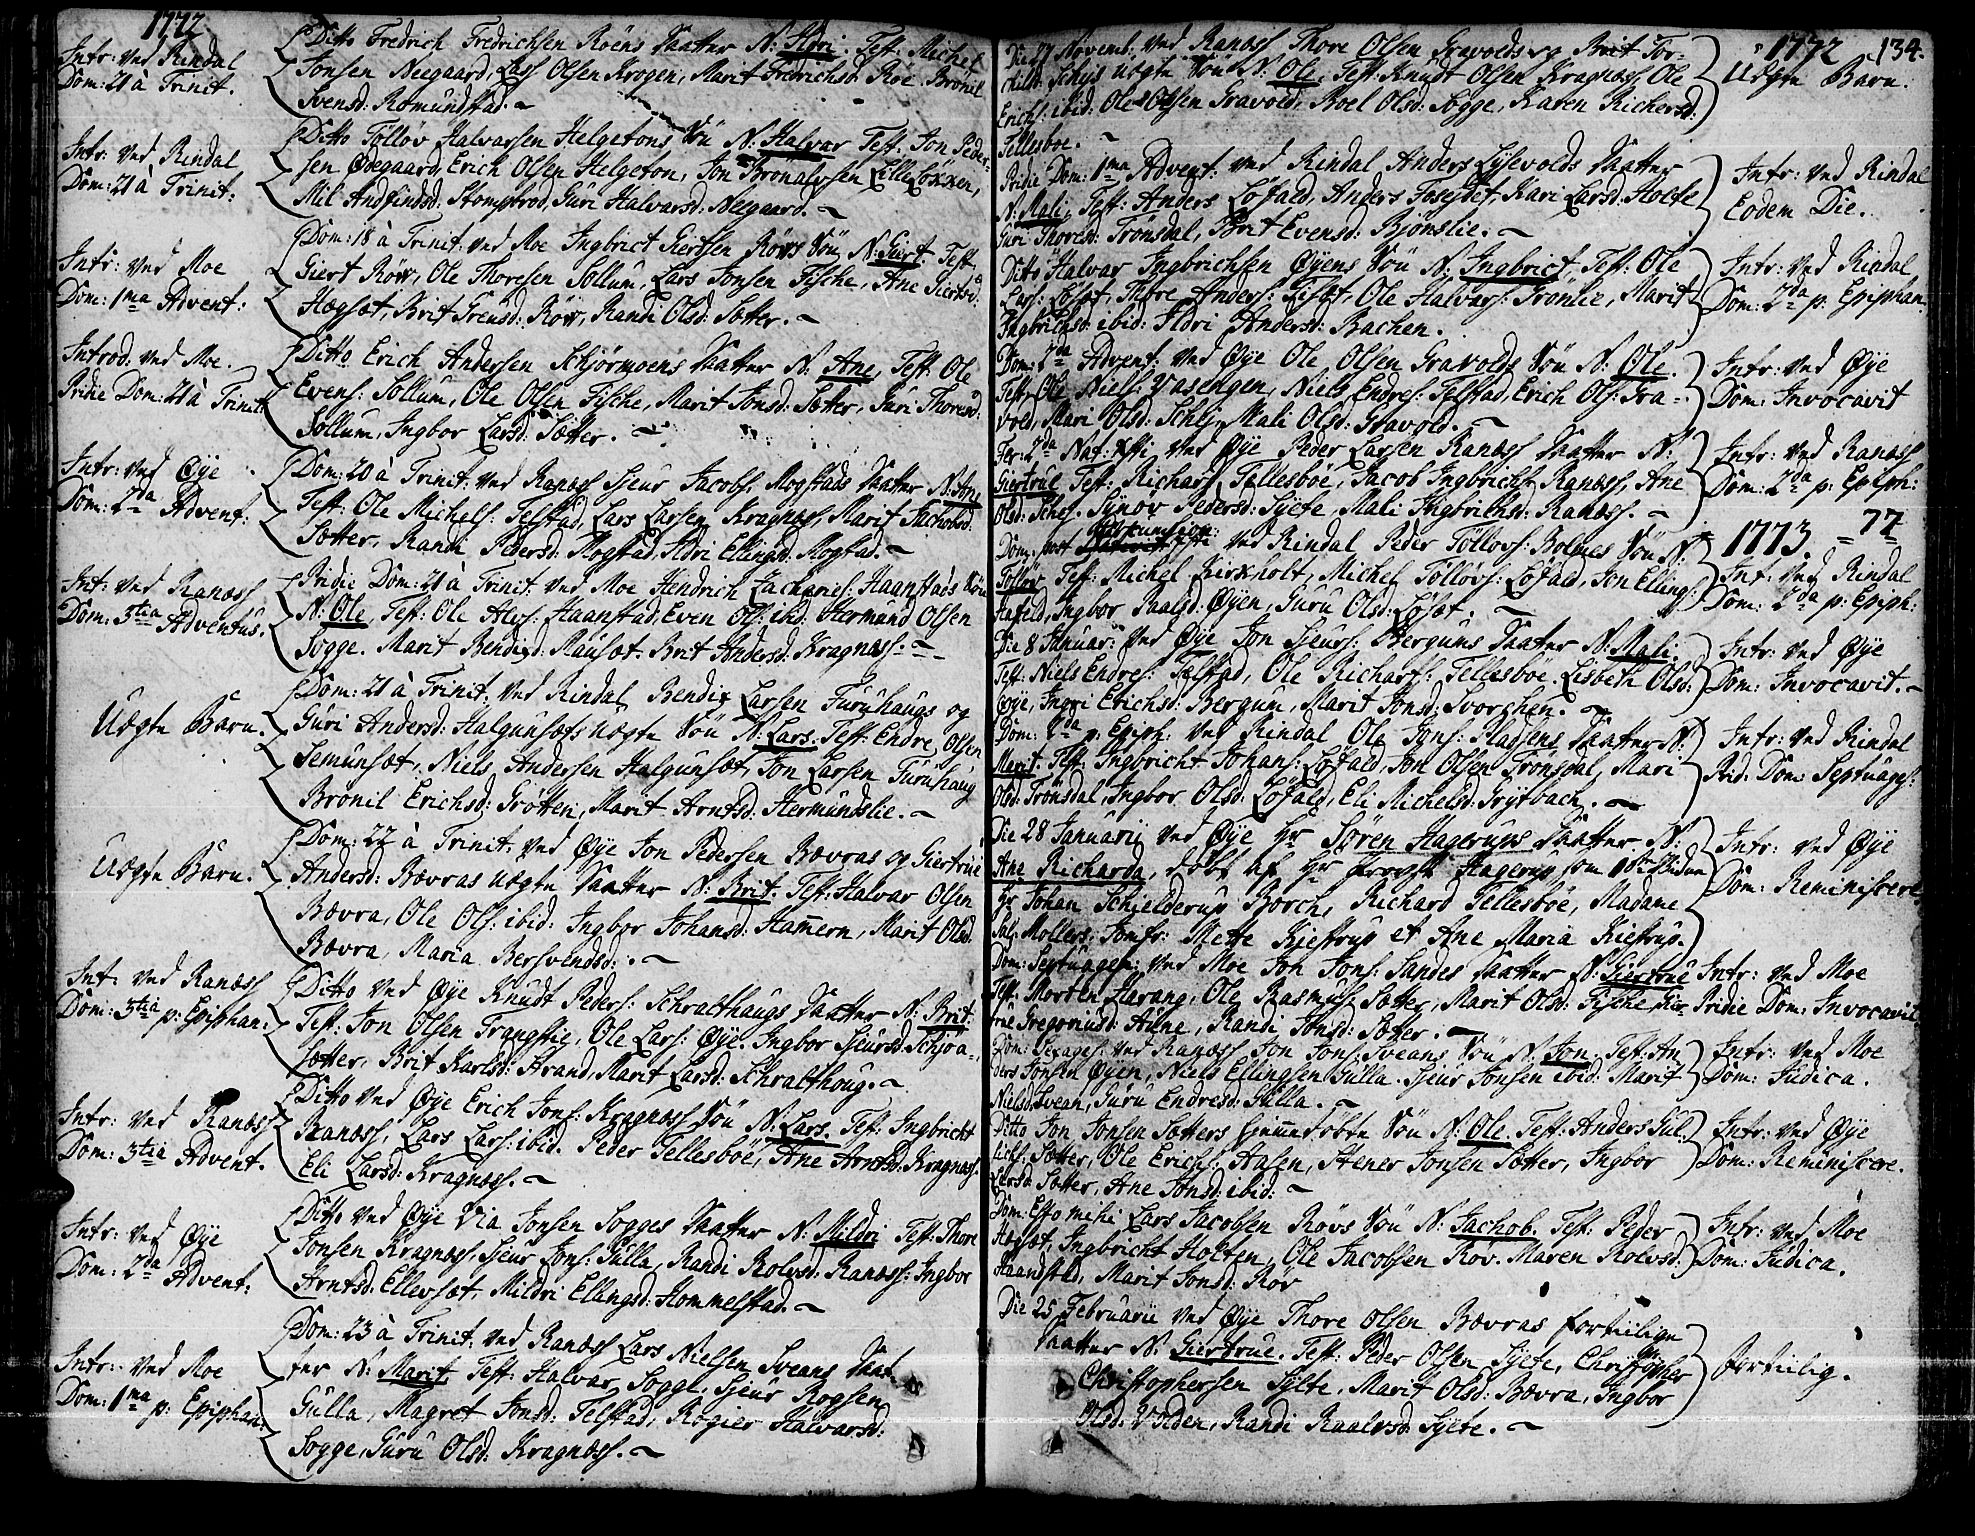 1772
Intr: ved Rindal
Dom: 21 à Trinit.
Ditto Fredrich Fredrichsen Roëns Daatter N: Ildri. Test: Michel
Jonsen Neegaard, Lars Olsen Krogen, Marit Fredrichsd: Roe. Bronil
Svensd: Romundstad. ~
Intr: ved Rindal
Dom: 21 à Trinit:
Ditto Tølløv Halvarsen Helgetons Søn N: Halvar Test: Jon Peder-
sen Ødegaard, Erich Olsen Helgeton, Jon Bronalvsen Lilleløkken,
Mil Andfindsd: Stomprod, Guri Halvarsd: Neegaard. ~
Intr: ved Moe
Dom: 1ma Advent:
Dom: 18 à Trinit: ved Moe Ingbrict Giertsen Røvs Søn N: Giert Test:
Giert Røv, Ole Thoresen Sollum, Lars Jonsen Fische, Ane Giertsd:
Hægsæt, Brit Trensd: Røv, Randi Olsd: Sætter. ~
Introd: ved Moe.
Pridie Dom: 21 à Trinit:
Ditto Erich Andersen Schjørmoens Daatter N: Ane, Test: Ole
Evens: Sollum, Ole Olsen Fische, Marit Jonsd: Sæter, Guri Thoresd:
Sollum, Ingbor Larsd: Sætter. ~
Intr: ved Øye
Dom: 2da Advent:
Dom: 20 à Trinit: ved Ranæss Sjeur Jacobs: Mogstads Daatter N: Ane
Test: Ole Michels: Telstad, Lars Larsen Kragnæss, Marit Jachobsd:
Sætter, Randi Pedersd: Mogstad, Ildri Ellingsd: Mogstad. ~
Int: ved Ranæss
Dom: 3tia Adventus.
Pridie Dom: 21 à Trinit: ved Moe Hendrich Zacharies: Haanstads Søn
N: Ole, Test: Ole Alvs: Haanstad, Even Ols: ibid: Hermund Olsen
Sogge. Marit Bendixd: Mausæt. Brit Andersd: Kragnæss: ~
Uægte Barn.
Dom: 21 à Trinit: ved Rindal Bendix Larsen Furuhaugs og
Guri Andersd: Halgunsæts uægte Søn N: Lars. Test: Endre Olsen
Semunsæt, Niels Andersen Halgunsæt, Jon Larsen Furuhaug
Bronil Erichsd: Grøtten, Marit Arntsd: Hermundslie. ~
Uægte Barn.
Dom: 22 à Trinit: ved Øye Jon Pedersen Bævras og Giertrue
Andersd: Bævras uægte Daatter N: Brit. Test: Halvar Olsen
Bævra, Ole Ols: ibid: Ingbor Johansd: Hamern, Marit Olsd:
Bævra, Maria Bersvendsd: . ~
Int: ved Ranæss
Dom: 3tia p: Epiphan:
Ditto ved Øye Knudt Peders: Schralthaugs Daatter N: Brit.
Test: Jon Olsen Trangstie, Ole Lars: Øye. Ingbor Sjeursd: Schjoa-
sætter, Brit Karlsd: Strand, Marit Larsd: Schralthoug. ~
Intr: ved Ranæss
Dom: 3tia Advent.
Ditto ved Øye Erich Jons: Kragnæss Søn N: Lars. Test: Ingbricht
Ranæss, Lars Lars: ibid. Peder Tellesbøe, Ane Arntsd: Kragnæss.
Eli Larsd: Kragnæss. ~
Intr: ved Øye
Dom: 2da Advent:
Ditto ved Øye Via Jonsen Sogges Daatter N: Mildri Test: Thore
Jonsen Kragnæss, Sjeur Jons: Gulla, Randi Rolvsd: Ranæss: Ingbor
Arntsd: Ellevsæt, Mildri Ellingsd: Hommelstad. ~
Intr: ved Moe
Dom: 1ma p: Epiphan:
Dom: 23 à Trinit: ved Ranæss Lars Nielsen Sveans Daat-
ter N: Marit Test: Halvar Sogge, Sjeur Rogsen
Gulla, Magret Jonsd: Telstad, Rogier Halvarsd:
Sogge, Guru Olsd: Kragnæss. ~
1772 134.
Die 27 Novemb: ved Ranæss Thore Olsen Gravolds og Brit Tor-
childs: Schejs uægte Søn N: Ole. Test: Knudt Olsen Kragnæss, Ole
Erichs: ibid: Ole Olsen Gravold, Roel Olsd: Sogge, Karen Richersd:
Tellesboe. ~
Uægte Barn.
Pridie Dom: 1ma Advent: ved Rindal Anders Lysevolds Daatter
N: Mali, Test: Anders Løfald, Anders Joseset, Kari Larsd: Holte
Guri Thoresd: Trønsdal, Brit Evensd: Bjønslie. ~
Intr: ved Rindal
Eodem Die.
Ditto Halvar Ingbrichsen Øyens Søn N: Ingbrict, Test: Ole
Lars: Løset, Thore Anders: Fiset, Ole Halvars: Trønlie, Marit
Ingbrichsd: ibid: Ildri Andersd: Bachen.
Intr: ved Rindal
Dom: 2da p: Epiphan:
Dom: 2da Advent: ved Øye Ole Olsen Gravolds Søn N: Ole.
Test: Ole Niels: Vasengen, Niels Endres: Telstad, Erich Ols: Gra-
vold, Mari Olsd: Schej, Mali Olsd: Gravold. ~
Intr: ved Øye
Dom: Invocavit
Fer: 2da Nat: Xsti ved Øye Peder Larsen Ranæss Daatter N:
Giertrue Test: Richard Tellesbøe, Jacob Ingbrichts: Ranæss, Ane
Olsd: Schej. Synøv Pedersd: Syete, Mali Ingbrichsd: Ranæss. ~
Intr: ved Ranæss
Dom: 2da p: Epiph:
1773. = 77
Dom: post Circumsion: Xsti ved Rindal Peder Tølløvs: Bolmes Søn N:
Tølløv Test: Michel Birkholt, Michel Tølløvs: Løfald, Jon Ellings:
Hafeld, Ingbor Paalsd: Øyen, Guru Olsd: Løset. ~
Int: ved Rindal
Dom: 2da p: Epiph:
Die 8 Januar: ved Øye Jon Sjeurs: Bergums Daatter N: Mali.
Test: Niels Endres: Telstad, Ole Richarts: Tellesbøe, Lisbeth Olsd:
Øye, Ingri Erichsd: Bergum, Marit Jonsd: Svorchen. ~
Intr: ved Øye
Dom: Invocavit. ~
Dom: 2da p: Epiph: ved Rindal Ole Jons: Pladsens Daatter N:
Marit. Test: Ingbricht Johans: Løfald, Jon Olsen Trønsdal, Mari
Olsd: Trønsdal, Ingbor Olsd: Løfald, Eli Michelsd: Grytbach. ~
Intr: ved Rindal
Prid: Dom: Septuages:
Die 28 Januarii ved Øye Hr Søren Hagerups Daatter N:
Ane Richarda, døbt af Hr Provst Hagerup, som
Hr Johan Schjelderup Borch, Richard Tellesbøe, Madame
Sal: Møllers, Jomfr: Mette Kjestrup et Ane Maria Kiestrup.
Intr: ved Øye
Dom: Reminiscere
Dom: Septuages: ved Moe Jon Jons: Sandes Daatter N: Giertrue
Test: Morten Harang, Ole Rasmuss: Sætter, Marit Olsd: Fische, Gier-
true Gregoriusd: Aune, Randi Jonsd: Sæter. ~
Intr: ved Moe
Pridie Dom: Invocavit
Dom: Sexages: ved Ranæss Jon Jons: Sveans Søn N: Jon, Test: An-
ders Jonsen Øyen, Niels Ellingsen Gulla. Sjeur Jonsen ibid: Marit
Nielsd: Svean, Guru Endresd: Gulla. ~
Intr: ved Moe
Dom: Judica.
Ditto Jon Jonsen Sætters hiemedøbte Søn N: Ole. Test: Anders Gul-
lichs: Sætter, Ole Erichs: Aasen, Stener Jonsen Sætter, Ingbor
Larsd: Sætter, Ane Jonsd: ibid: ~
Intr: ved Øye
Dom: Reminiscere.
Dom: Esto mihi Lars Jacobsen Røvs Søn N: Jachob. Test: Peder
Hegset, Ingbricht Holten, Ole Jacobsen Røv. Maren Rolvsd:
Haandstad, Marit Jonsd: Røv
Intr: ved Moe
Dom: Judica.
Die 25 Februarii ved Øye Thore Olsen Bævras fortiilige
Daatter N: Giertrue. Test: Peder Olsen Syete, Christopher
Christophersen Sylte, Marit Olsd: Bævra, Ingbor
Olsd: Volden, Randi Raalvsd: Syete. ~
fortiilig.